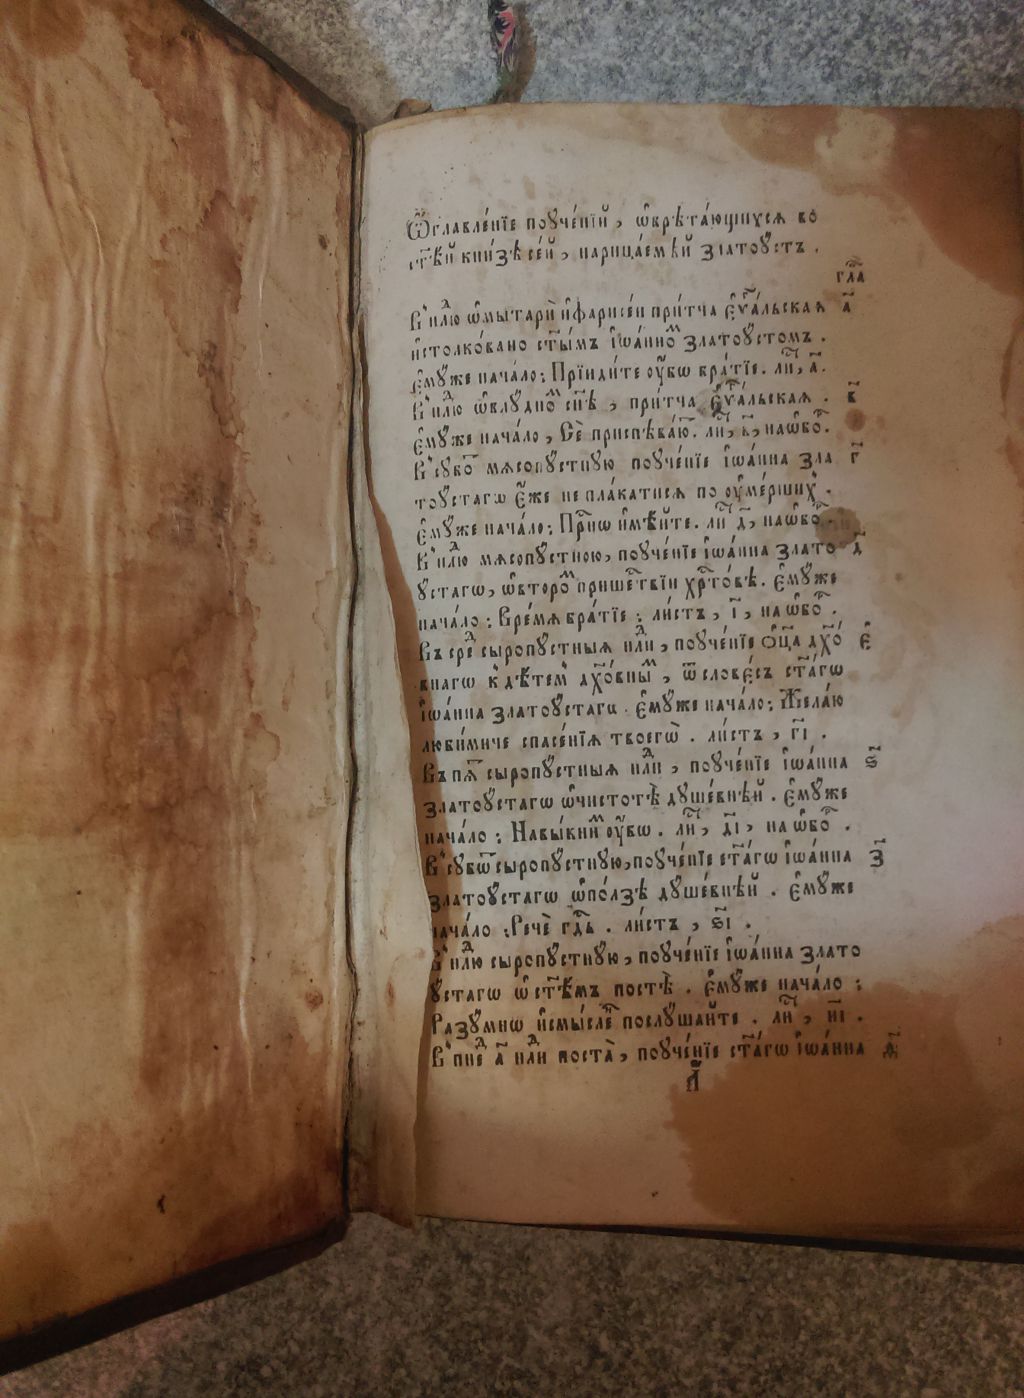 Ѡ҆главле́нїе поꙋче́нїй, ѡ҆брѣта́ющихсѧ во
ст҃ѣ́й кни́зѣ се́й, нарица́емѣй златоꙋ́стъ.
гла̑
В̾ нл҇ю ѡ҆мытарѝ и҆фарисе́и при́тча є҆ѵⷢ҇а́льскаѧ а҃
и҆столко́вано ст҃ы́мъ і҆ѡа́нноⷨ златоꙋ́стомъ.
є҆мꙋ́же нача́ло: Прїиди́те ᲂу҆̀бѡ бра́тїе. лиⷭ҇, а҃.
В̾ нлⷣю ѡ҆блꙋ́дноⷨ сн҃ѣ, при́тча є҆ѵⷢ҇а́льскаѧ. в҃
є҆мꙋ́же нача́ло, Сѐ приспѣва́юⷮ. лиⷭ҇, на ѡ҆боⷬ҇.
В̾ сꙋбоⷮ мѧсопꙋ́стнꙋю поꙋче́нїе і҆ѡа́нна зла г҃
тоꙋ́стагѡ є҆́же не пла́катисѧ по ᲂу҆ме́ршихъ.
є҆мꙋ́же нача́ло: Прⷭ҇нѡ и҆мѣ́йте. лиⷭ҇ д҃, на ѡ҆боⷬ҇.
В̾ нлⷣю мѧсопꙋ́стною, поꙋче́нїе і҆ѡа́нна злато д҃
ꙋ́стагѡ, ѡ҆второⷨ прише́ствїи хрⷭ҇то́вѣ. є҆мꙋ́же
нача́ло: Вре́мѧ бра́тїе: ли́стъ, і҃, на ѡ҆боⷬ҇.
Въ среⷣ сыропꙋ́стныѧ нлⷣи, поꙋче́нїе ѻ҆ц҃а дх҃о́ є҃
внагѡ к̾ дѣ́темъ дх҃о́вныⷨ, ѿ слове́съ ст҃а́гѡ
і҆ѡа́нна златоꙋ́стаго. є҆мꙋ́же нача́ло: Жела́ю
люби́миче спасе́нїѧ твоегѡ̀. ли́стъ, г҃і.
Въ пѧⷮ сыропꙋ́стныѧ нлⷣи, поꙋче́нїе і҆ѡа́нна ѕ҃
златоꙋ́стагѡ ѡ҆чистотѣ̀ дꙋше́внѣй. є҆мꙋ́же
нача́ло: Навы́книⷨ ᲂу҆̀бѡ. лиⷭ҇, д҃і, на ѡ҆боⷬ҇.
В̾ сꙋбѡⷮ сыропꙋ́стнꙋю, поꙋче́нїе ст҃а́гѡ і҆ѡа́нна з҃
златоꙋ́стагѡ ѡ҆по́лзѣ дꙋше́внѣй. є҆мꙋ́же
нача́ло: Речѐ гдⷭ҇ь. ли́стъ, ѕ҃і.
В̾ нлⷣю сыропꙋ́стнꙋю, поꙋче́нїе і҆ѡа́нна злато
ꙋ́стагѡ ѡ҆ ст҃ѣ́мъ постѣ̀. є҆мꙋ́же нача́ло:
Разꙋ́мнѡ и҆смы́слеⷩ҇ послꙋ́шайте. лиⷭ҇, и҃і.
В̾ пнеⷣ а҃ нлⷣи поста̀, поꙋче́нїе ст҃а́гѡ і҆ѡа́нна
а҃